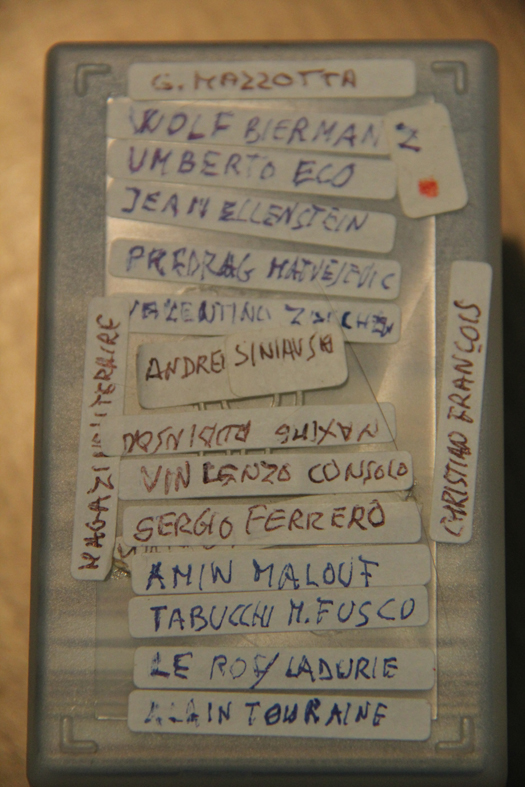 G. MAZZOTTA
WOLF BIERMAN
Z
UMBERTO ECO
JEAN ELLENSTEIN
PREDRAG MATVEJEVIC
ANDREI SINIAVSKI
MAXIME RODINSON
VINCENZO CONSOLO
SERGIO FERRERO
AMIN MALOUF
TABUCCHI M. FUSCO
LE ROY/LADURIE
ALAIN TOURAINE
CHRISTIAN FRANÇOIS